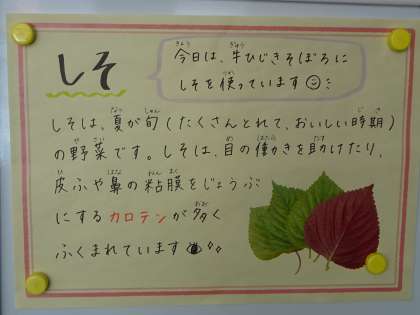 しそ
今日は、牛ひじきそぼろに
しそを使っています
しそは、夏が旬(たくさんとれて、おいしい時期)
の野菜です。しそは、目の働きを助けたり、
皮ふや鼻の粘膜をじょうぶ
にするカロテンが多く
ふくまれています